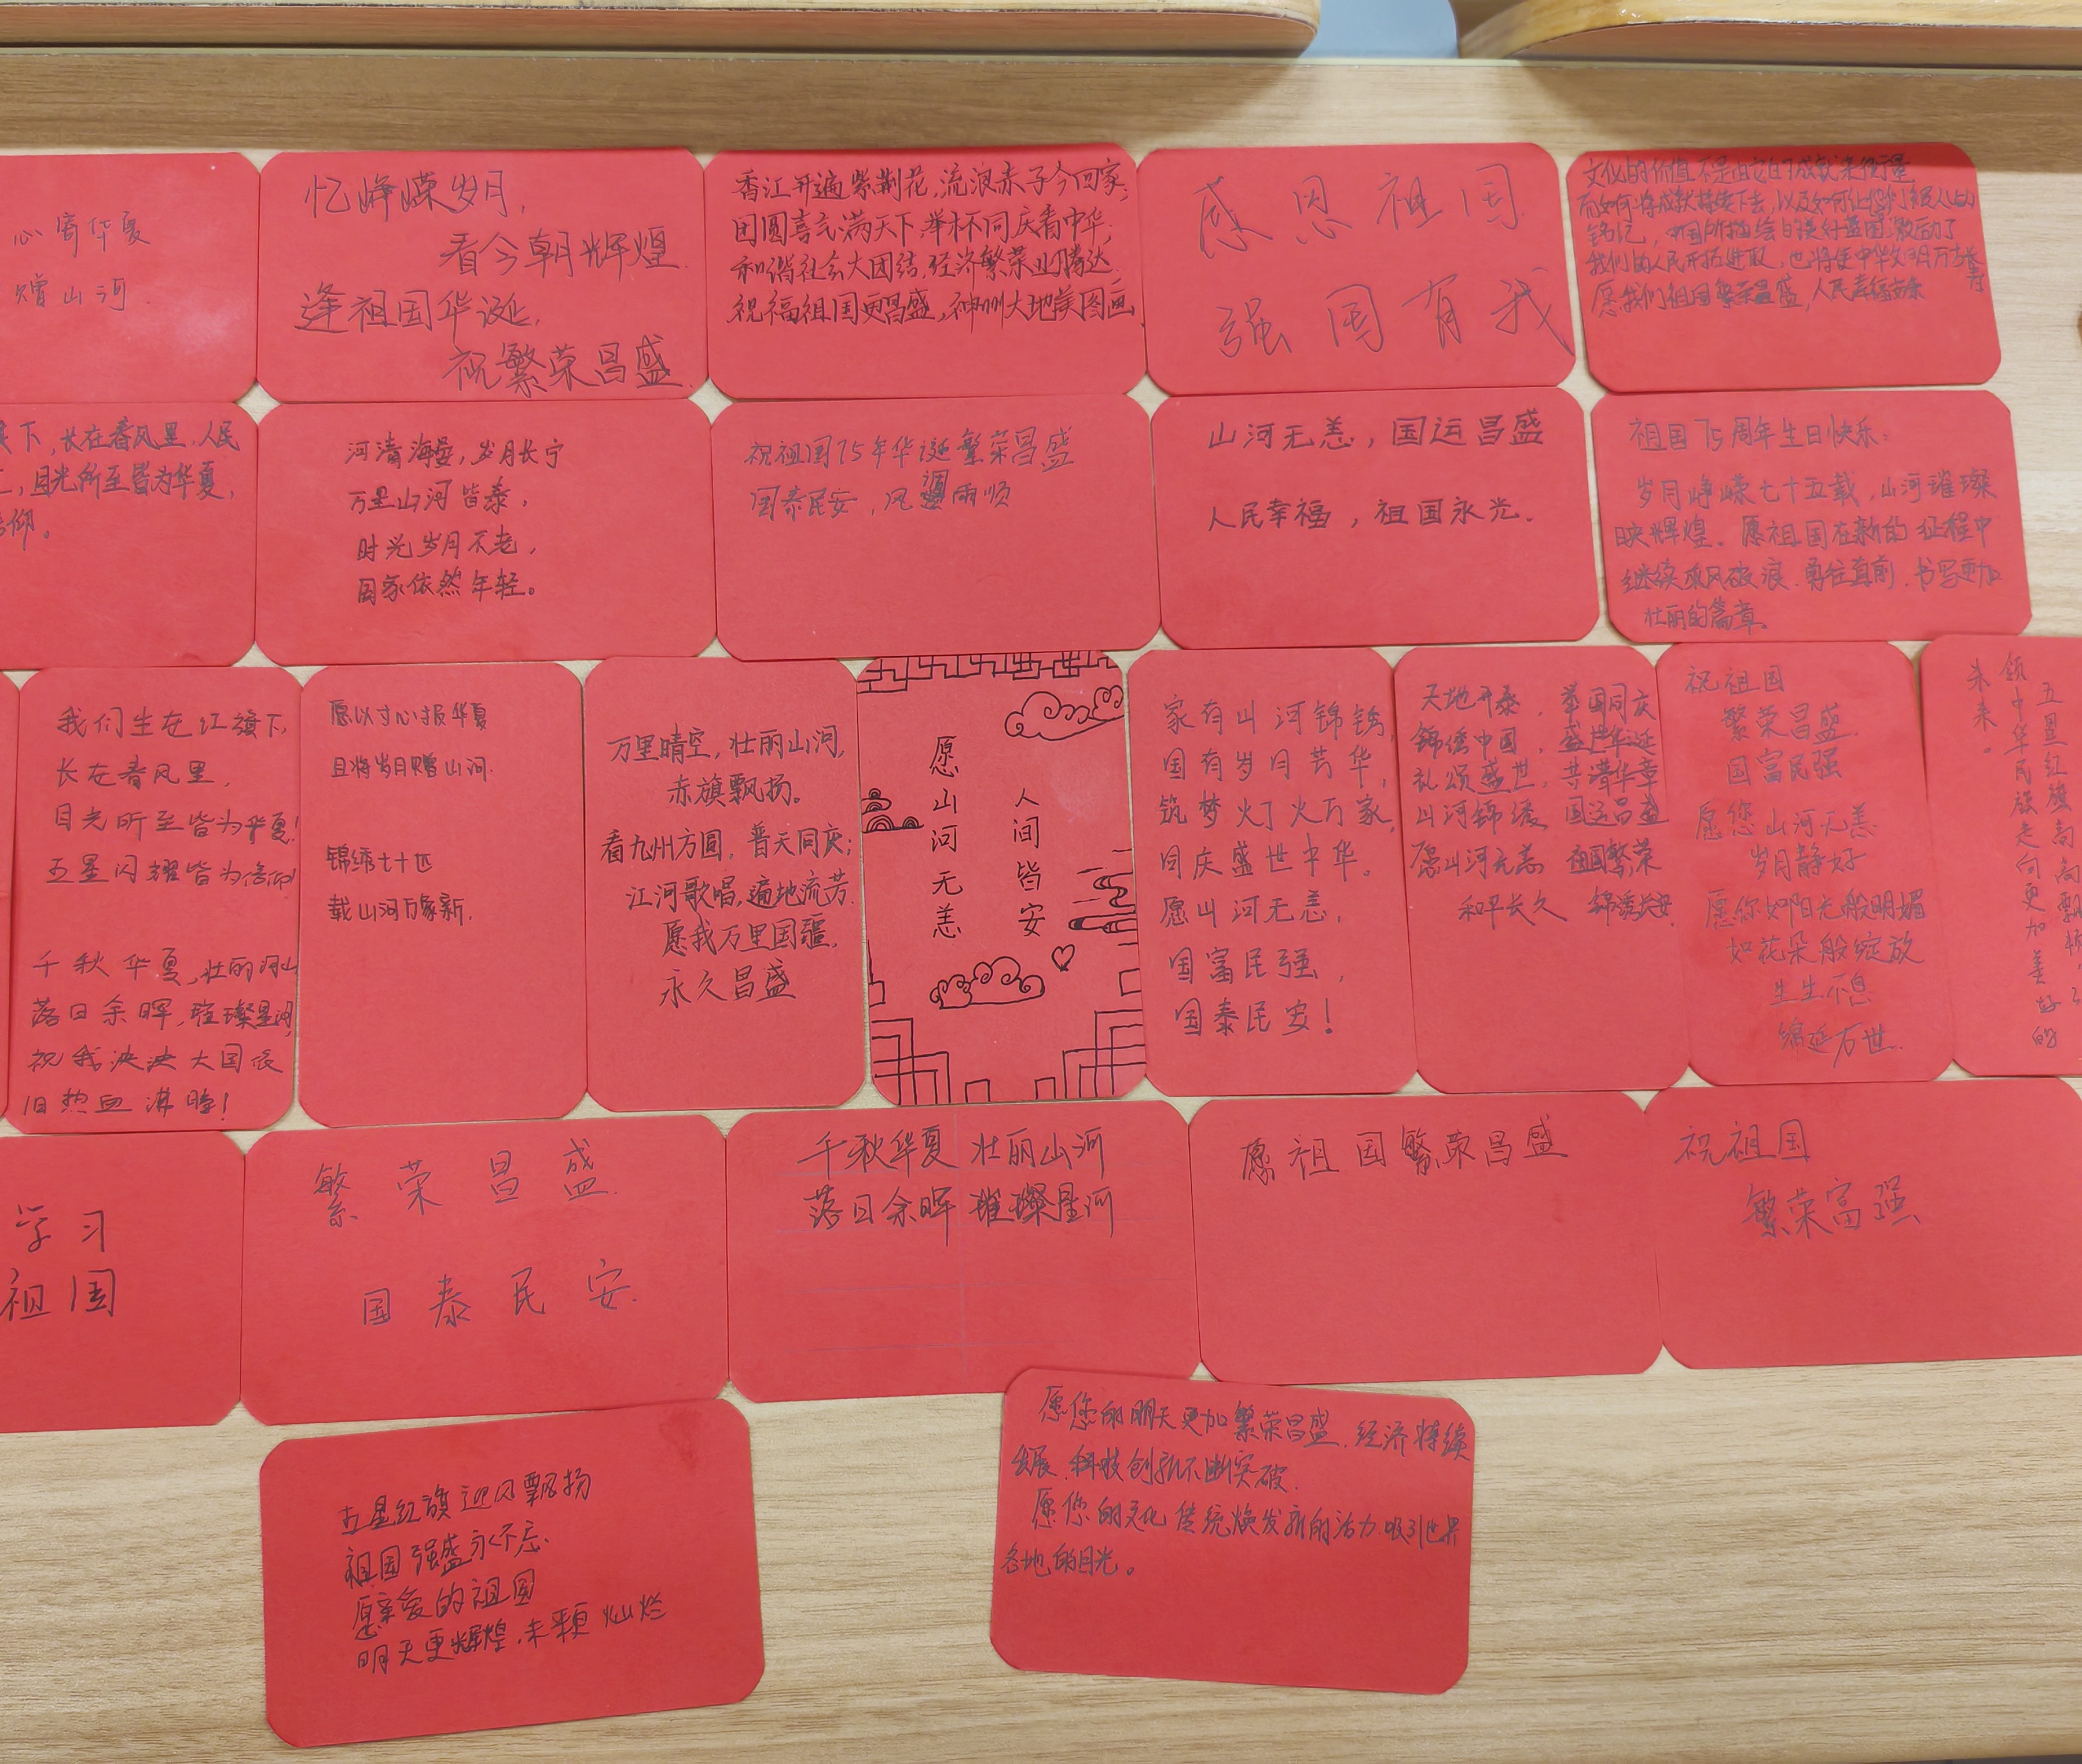 心寄华夏
赠山河
忆峥嵘岁月,
看今朝辉煌.
逢祖国华诞,
祝繁荣昌盛.
香江开遍紫荆花,流浪赤子今回家;
团圆喜气满天下,举杯同庆看中华;
和谐社会大团结,经济繁荣业腾达.
祝福祖国更昌盛,神州大地美图画.
感恩祖国
强国有我
文化的价值不是由它的成就来衡量
而如何将成就接续下去,以及如何让
铭记,中国所描绘的美好蓝图,激励了
我们的人民开拓进取,也将使中华文明万古长青
愿我们祖国繁荣昌盛,人民幸福安康
下,长在春风里.人民
,目光所至皆为华夏,
信仰。
河清海晏,岁月长宁
万里山河皆泰,
时光岁月不老,
国家依然年轻。
祝祖国75年华诞繁荣昌盛
国泰民安,风调雨顺
山河无恙,国运昌盛
人民幸福,祖国永光.
祖国75周年生日快乐:
岁月峥嵘七十五载,山河璀璨
映辉煌.愿祖国在新的征程中
继续乘风破浪.勇往直前.书写更加
壮丽的篇章。
我们生在红旗下,
长在春风里,
目光所至皆为华夏!
五星闪耀皆为信仰!
千秋华夏,壮丽河山
落日余晖,璀璨星河,
祝我泱泱大国依
旧热血沸腾!
愿以寸心报华夏
且将岁月赠山河.
锦绣七十五
载山河万象新.
万里晴空,壮丽山河,
赤旗飘扬。
看九州方圆,普天同庆;
江河歌唱,遍地流芳.
愿我万里国疆,
永久昌盛
愿山河无恙
人间皆安
家有山河锦绣,
国有岁月芳华,
筑梦灯火万家,
同庆盛世中华。
愿山河无恙,
国富民强,
国泰民安!
天地开泰,举国同庆
锦绣中国,盛世华诞
礼颂盛世,共谱华章
山河锦瑗 国运昌盛
愿山河无恙 祖国繁荣
和平长久 锦绣长安
祝祖国
繁荣昌盛.
国富民强
愿您山河无恙
岁月静好
愿你如阳光般明媚
如花朵般绽放
生生不息
绵延万世.
五星红旗高高飘扬,
领中华民族走向更加美好的
未来。
学习
祖国
繁荣昌盛.
国泰民安.
千秋华夏 壮丽山河
落日余晖 璀璨星河
愿祖国繁荣昌盛
祝祖国
繁荣富强
五星红旗迎风飘扬
祖国强盛永不忘.
愿亲爱的祖国
明天更辉煌.未来更灿烂
愿您的明天更加繁荣昌盛.经济持续
发展.科技创新不断突破.
愿您的文化传统焕发新的活力.吸引世界
各地的目光。